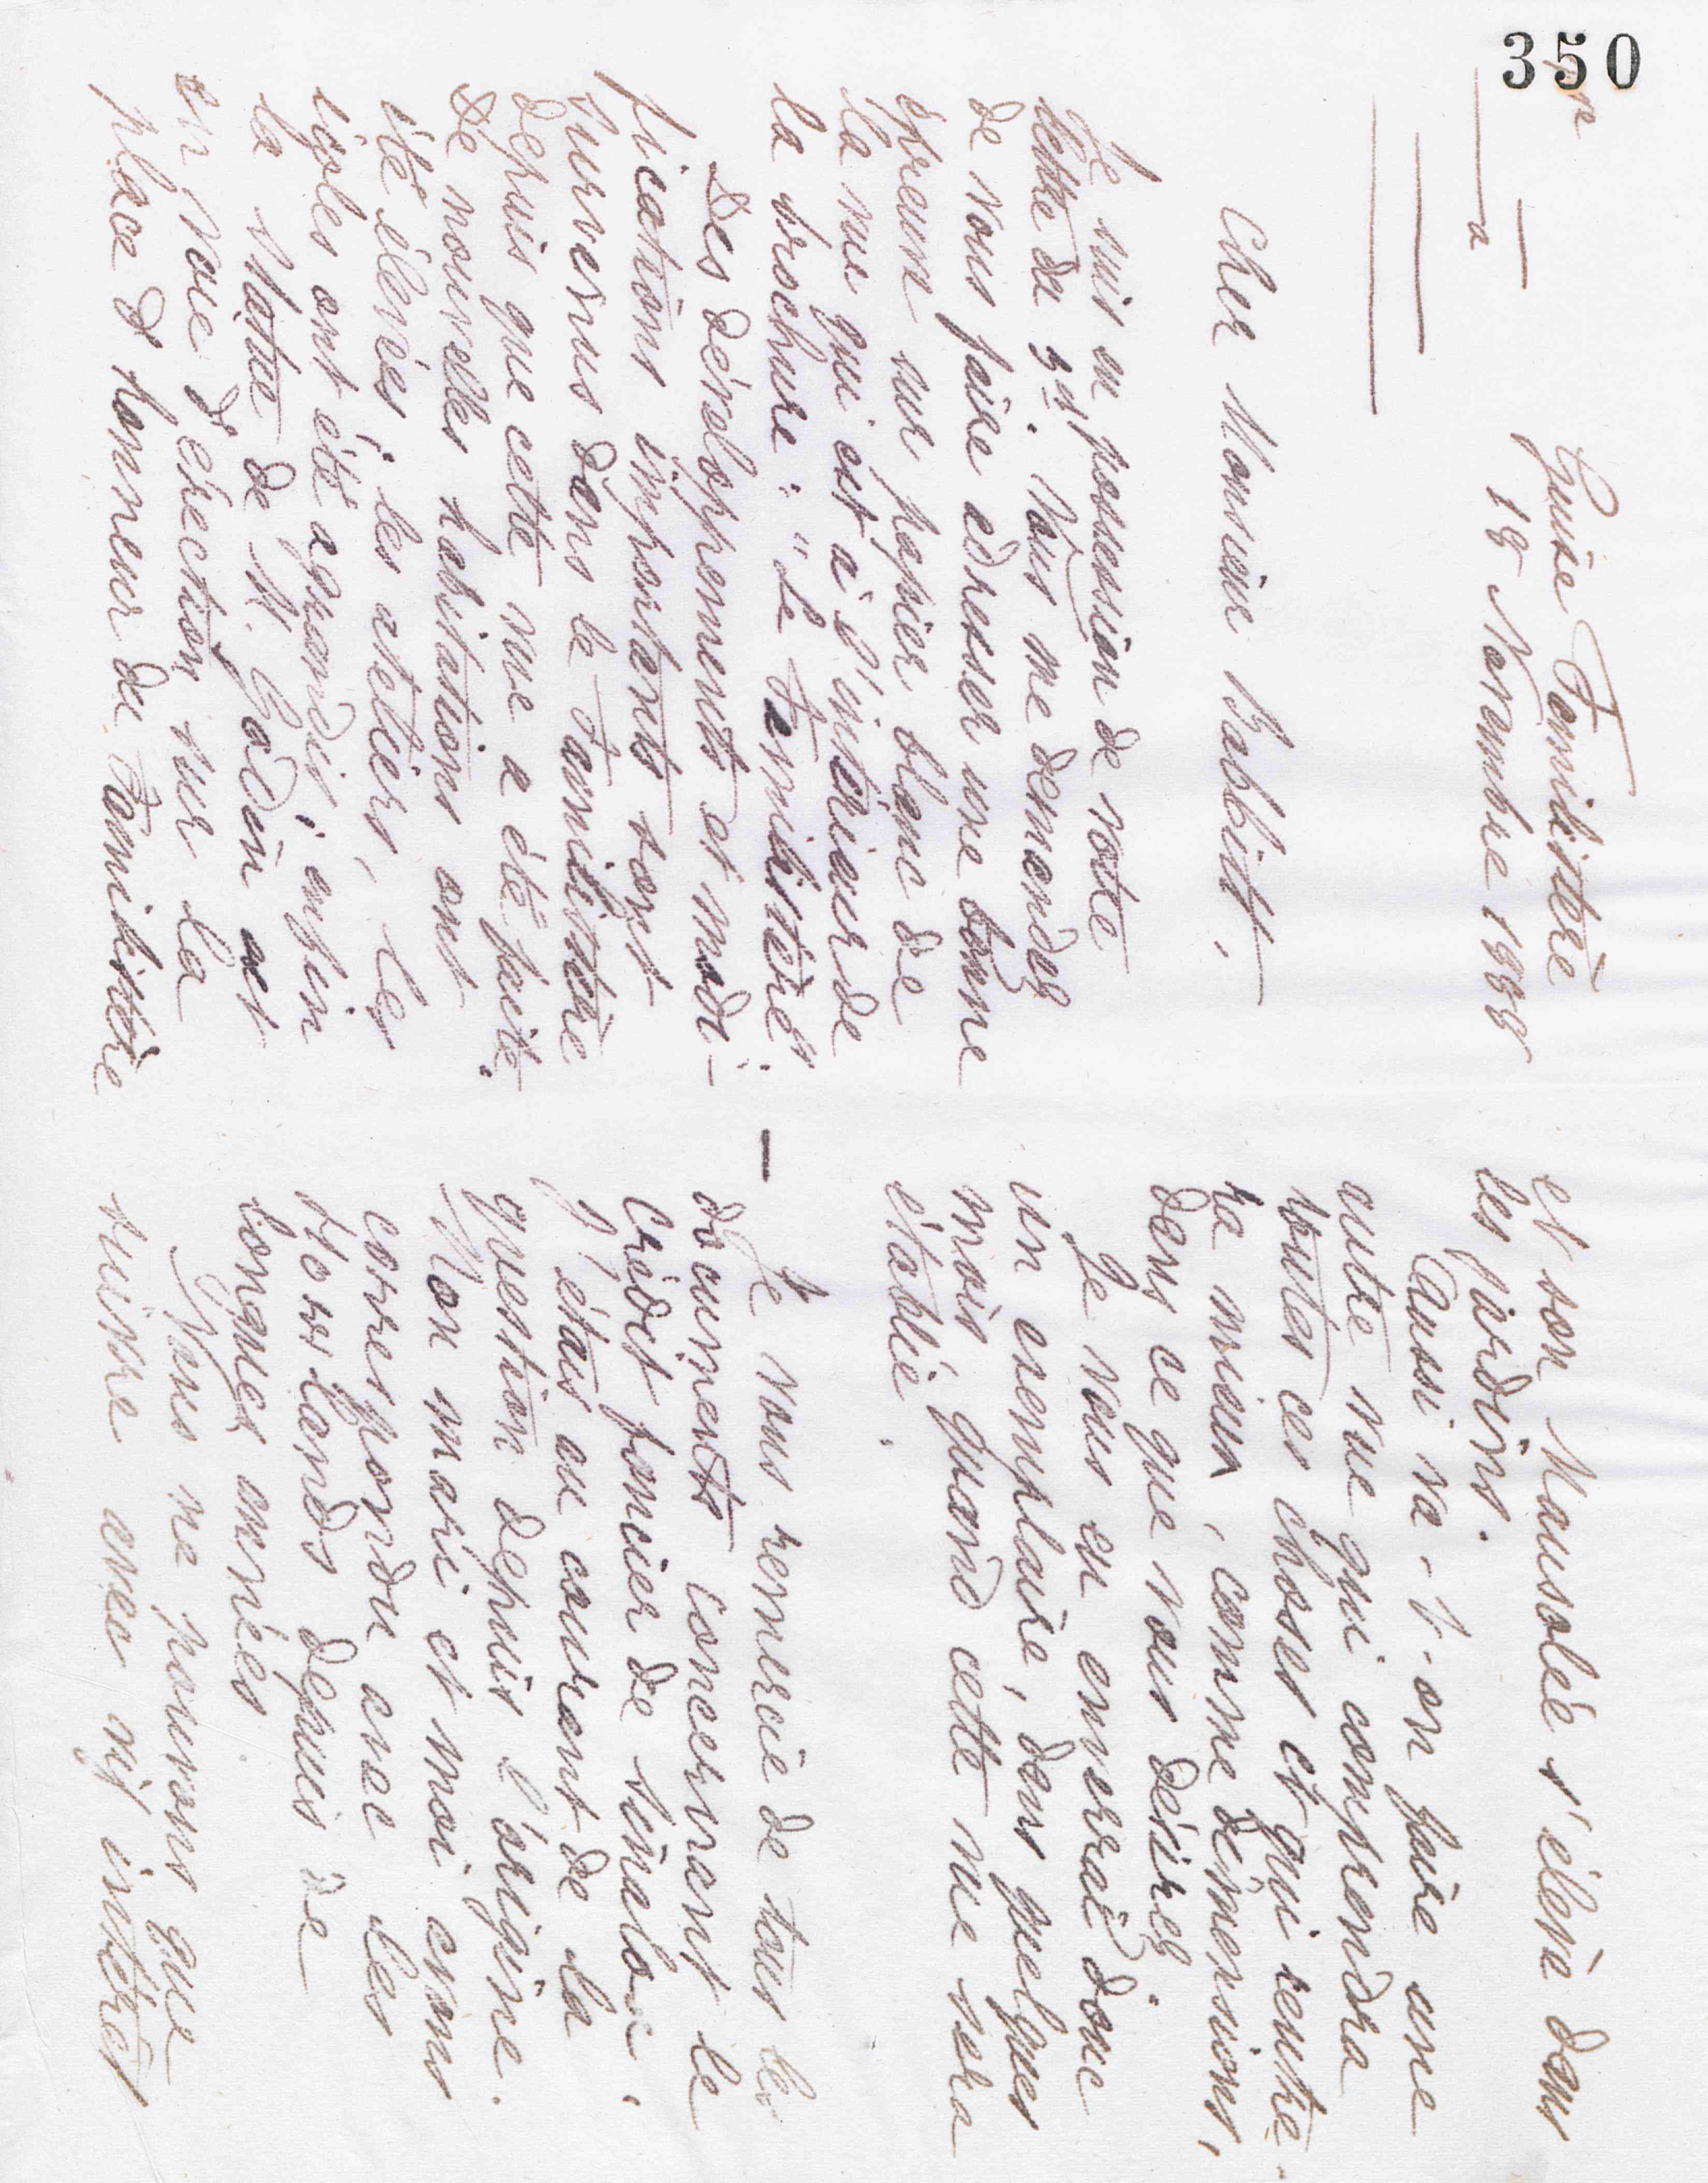 350
Guise Familistère
18 Novembre 1888
Cher Monsieur Babbitt,
Je suis en possession de votre
lettre du 3 ct. Vous me demandez
de vous faire adresser une bonne
épreuve sur papier blanc de
la vue qui est à l'intérieur de
la brochure: "Le Familistère".
Des développements et modi-
fications importants sont
survenus dans le Familistère
depuis que cette vue a été faite.
De nouvelles habitations ont
été élevées; les ateliers, les
écoles ont été agrandis; enfin
la statue de M. Godin est
en voie d'érection sur la
place d'honneur du Familistère
et son Mausolée s'élève dans
les jardins.
Aussi va-t-on faire une
autre vue qui comprendra
toutes ces choses et qui rentre-
ra mieux, comme dimensions,
dans ce que vous désirez.
Je vous en enverrai donc
un exemplaire, dans quelques
mois, quand cette vue sera
établie.
— Je vous remercie de tous les
documents concernant le
Crédit foncier de Sinaloa.
J'étais au courant de la
question depuis l'origine.
Mon mari et moi avons
correspondu avec les
Howlands depuis de
longues années
Nous ne pouvons que
suivre avec vif intérêt